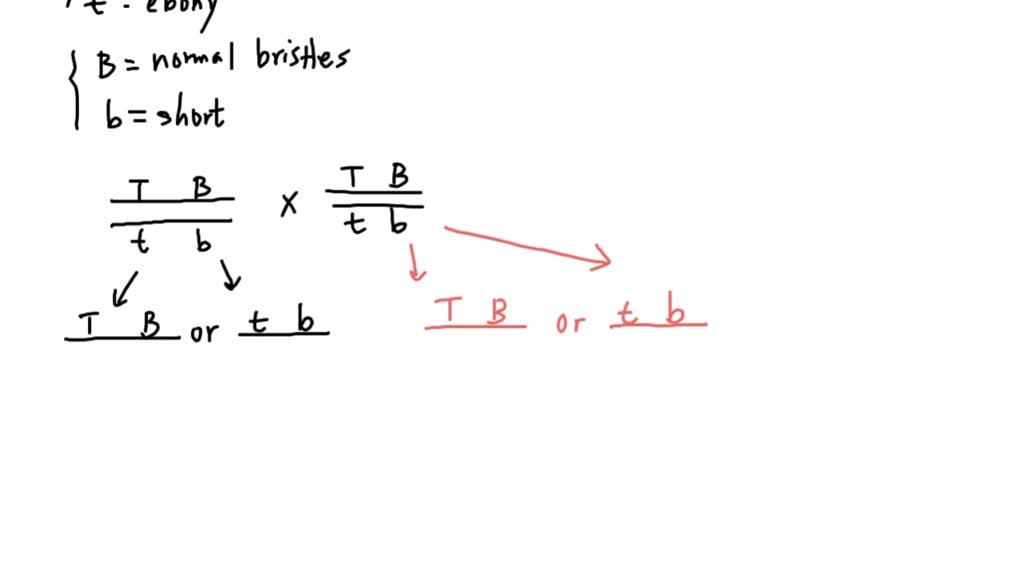 t = ebony
B = normal bristles
b = short
T B × T B
t b t b
T B or t b T B or t b